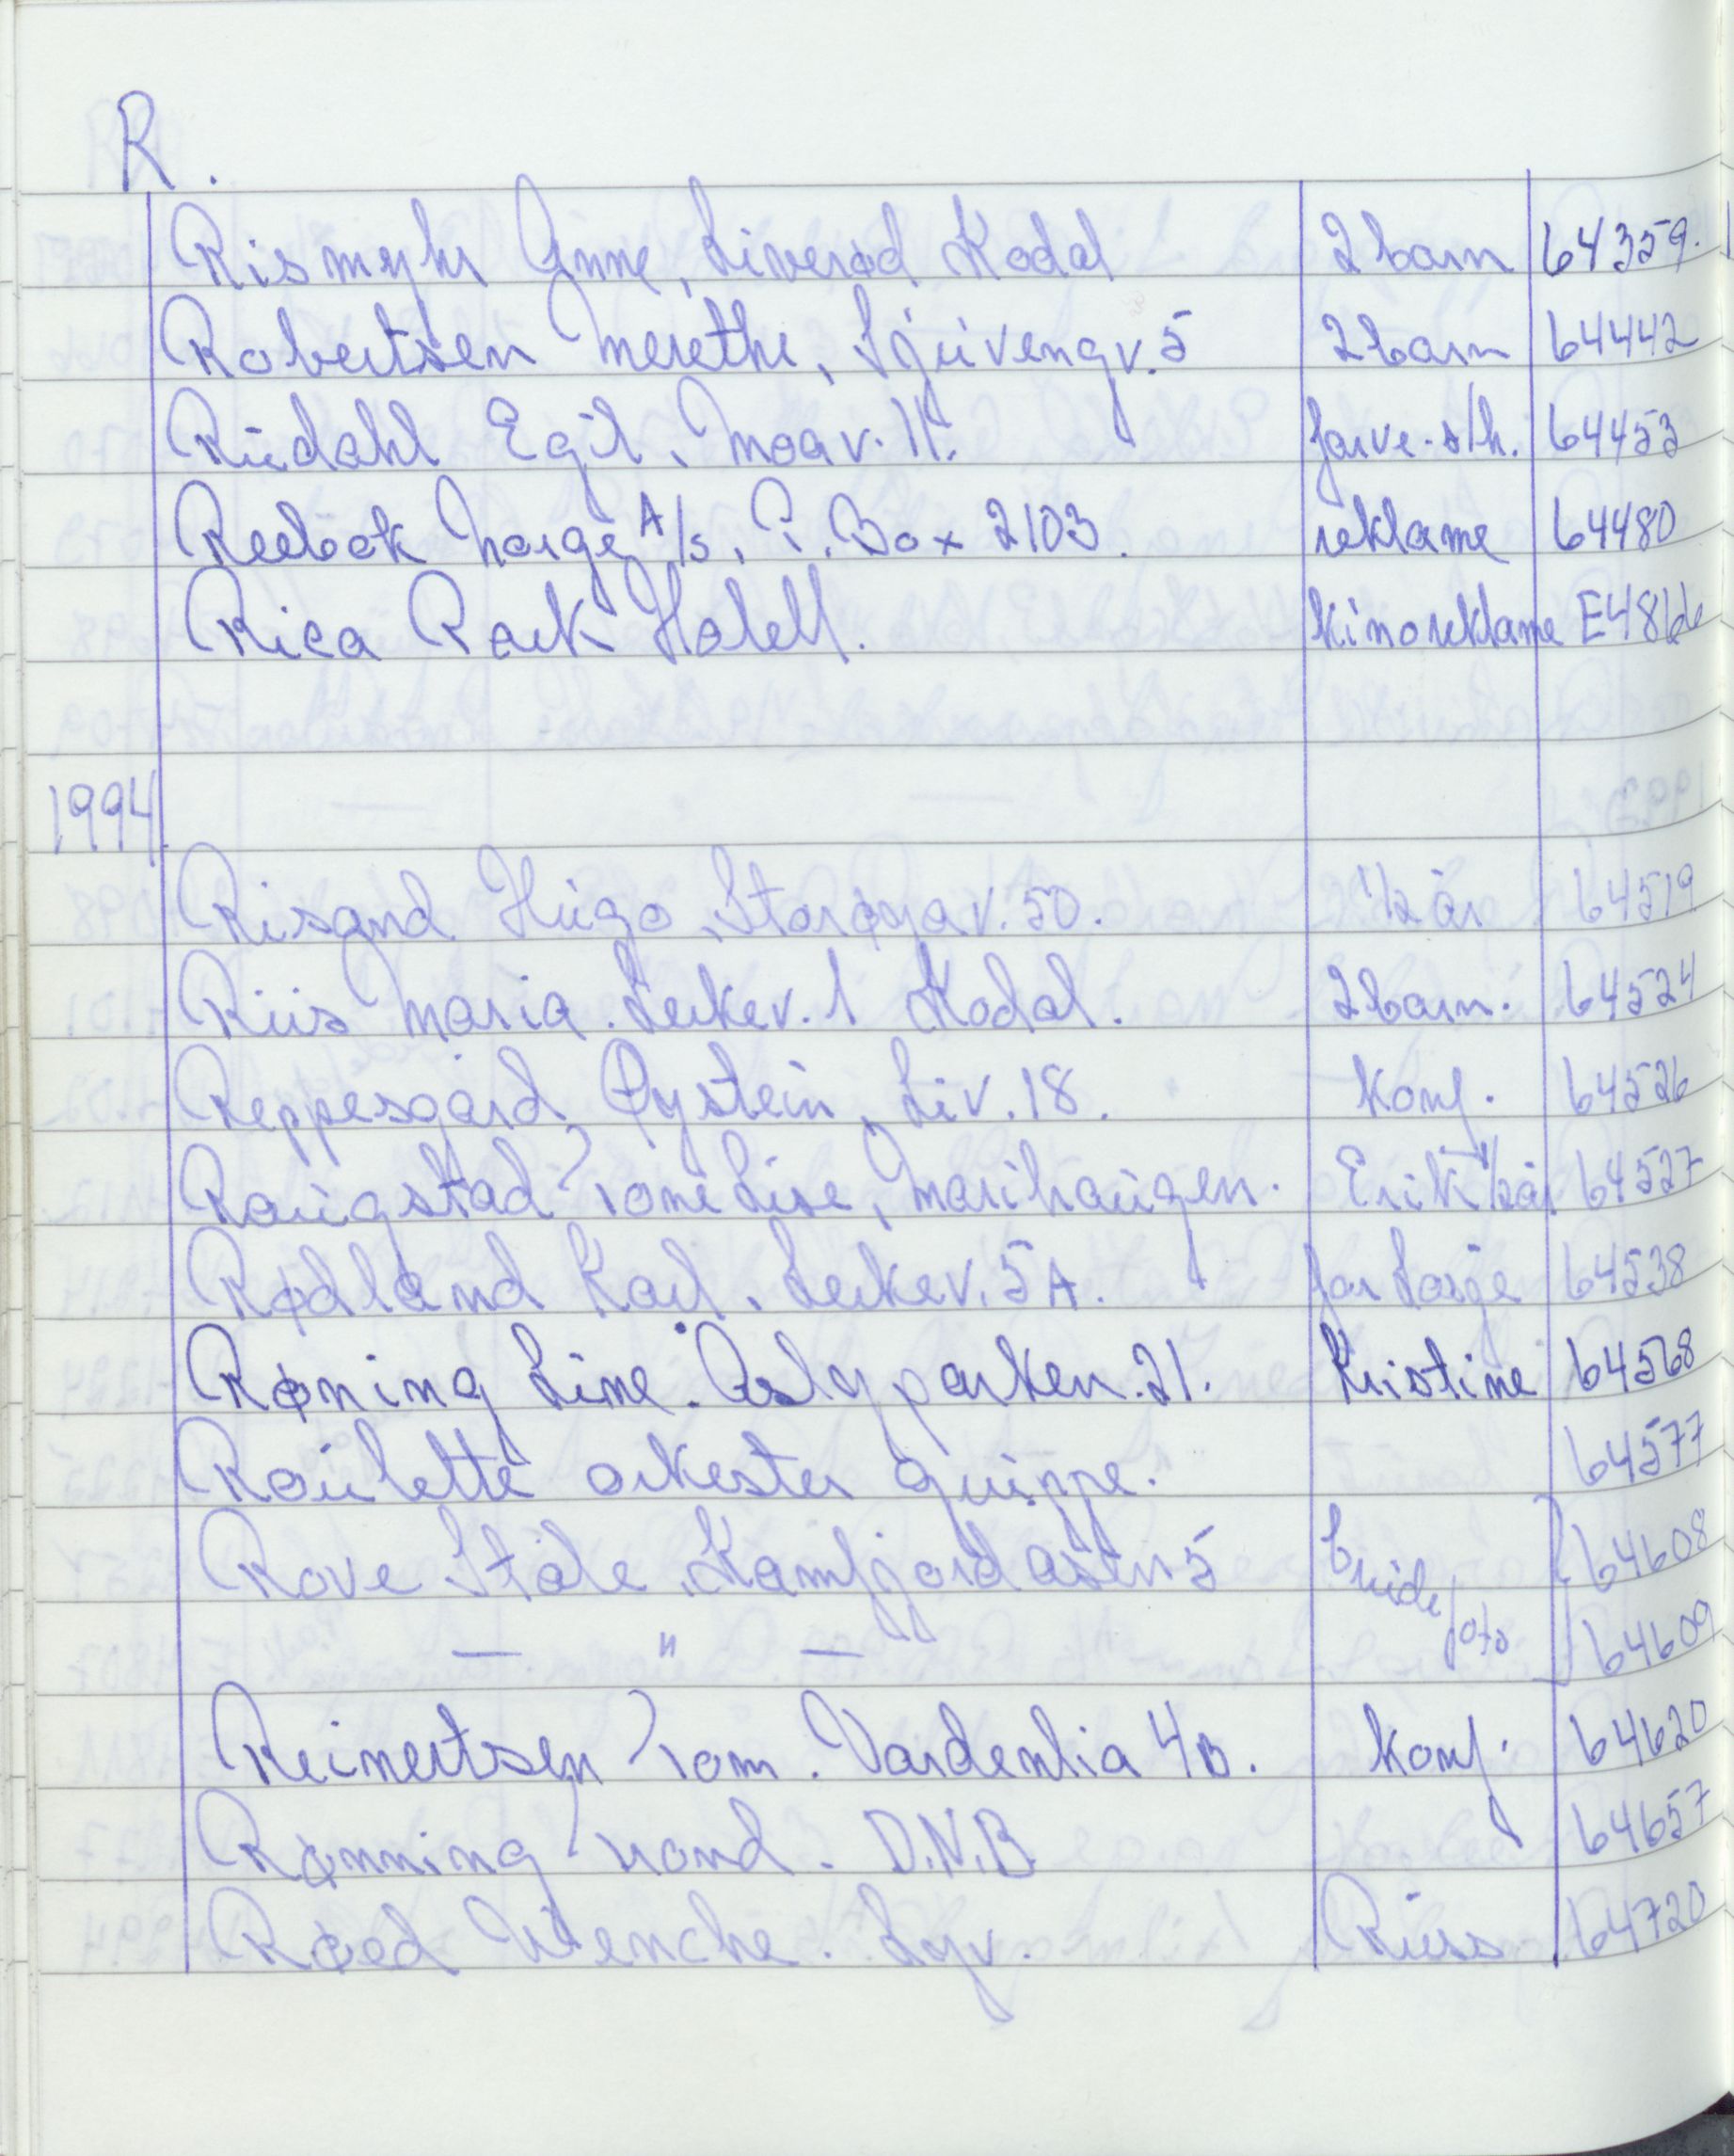 R.
Rismyhr Anne, Liverød Kodal 2 barn 64359.
Robertsen Merethe, Sjuvengv. 5 2 barn 64442
Rudahl Egil, Moav. 11. farve-s/h. 64453
Reebok Norge A/s, P. Box 2103. reklame 64480
Rica Park Hotell. kinoreklame E4866
1994.
Risand Hugo, Storøyav. 50. 1/2 år 64519
Riis Maria. Leikev. 1 Kodal. 2 barn. 64524
Reppesgård Øystein, Liv. 18. konf. 64526
Raugstad Tone Lise, Marihaugen. Erik 1/2 år 64527
Rødland Karl, Leikev. 5A. 64538
Røning Line. Åslyparken. 21. Kristine 64568
Roulette orkester gruppe. 64577
Rove Ståle, Kamfjordåsen 5 brude 64608
— " — foto 64609
Reinertsen Tom. Vardenlia 4B. konf. 64620
Rønning Trond. D.N.B 64657
Røed Wenche. Lyv. Russ 64720